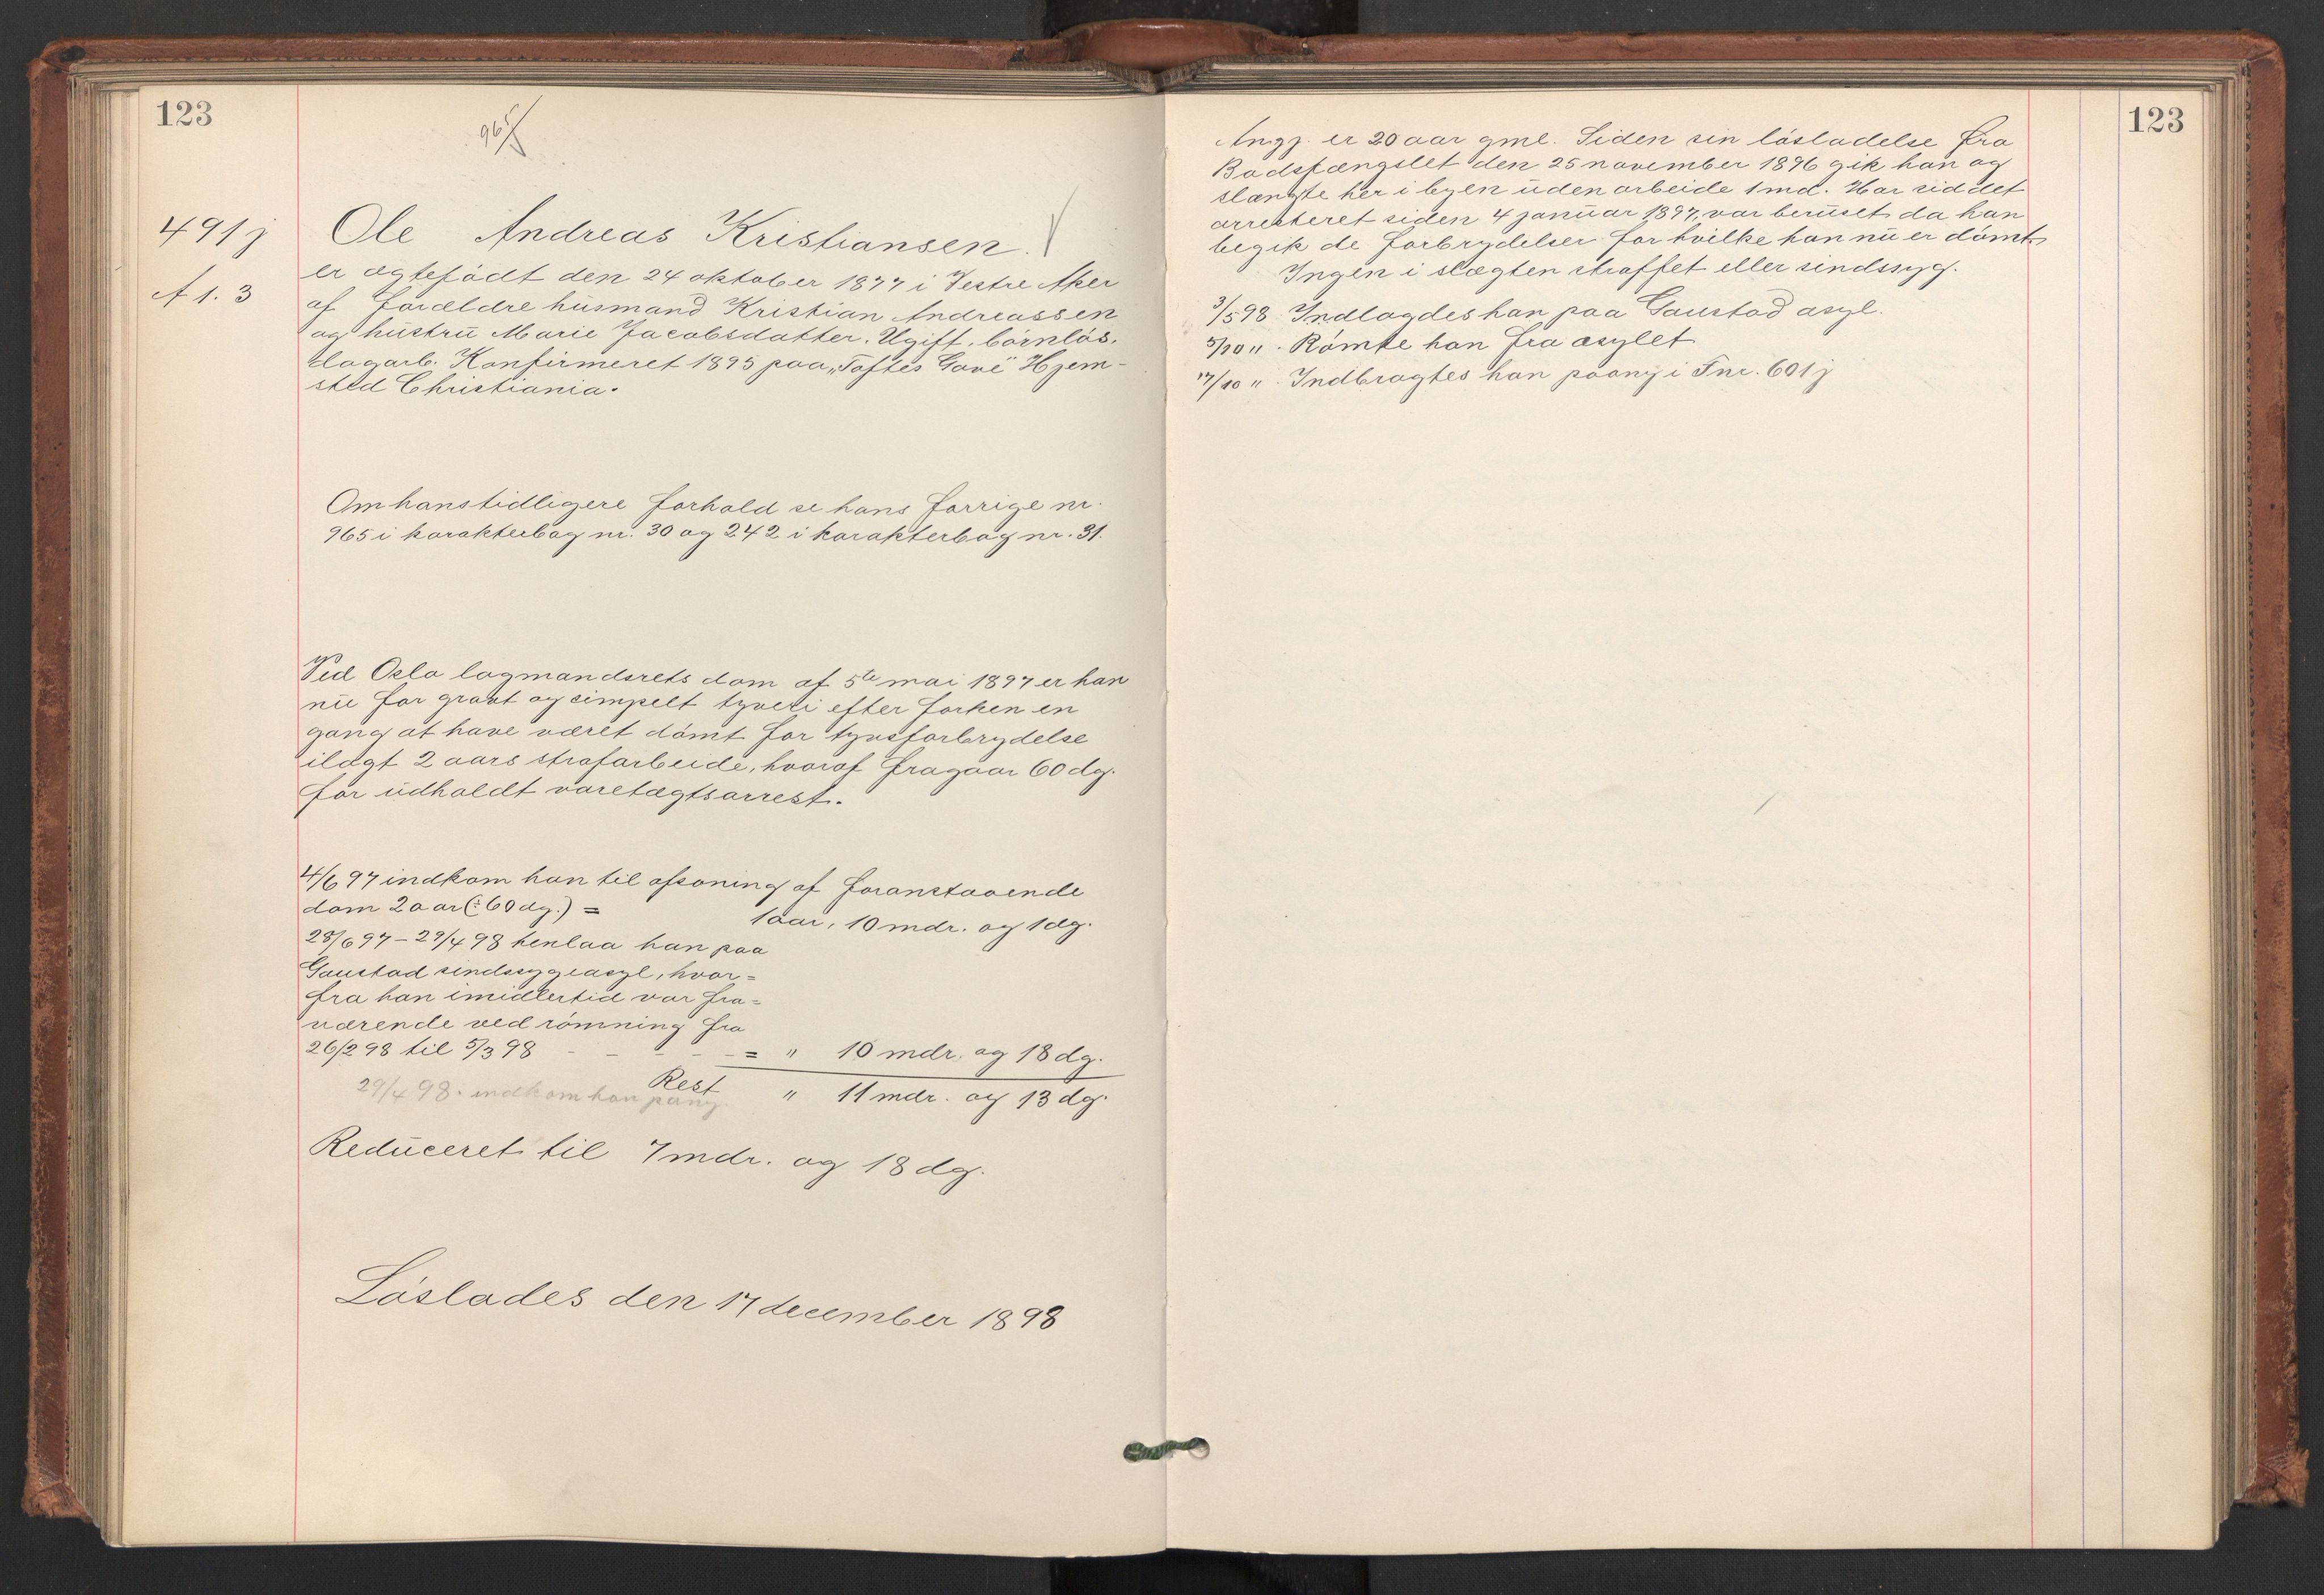 123
965/
491j
A 1. 3
Ole Andreas Kristiansen.
er ægtefödt den 24 oktober 1877 i Vestre Aker
af forældre husmand Kristian Andreassen
og hustru Marie Jacobsdatter. Ugift, börnlös,
dagarb. Konfirmeret 1895 paa „Toftes Gave" Hjem-
sted Christiania.
Om hans tidligere forhold se hans forrige nr.
965 i karakterbog nr. 30 og 242 i karakterbog nr. 31.
Ved Oslo lagmandsrets dom af 5te mai 1897 er han
nu for grovt og simpelt tyveri efter förhen en
gang at have været dömt for tyvsforbrydelse
ilagt 2 aars strafarbeide, hvoraf fragaar 60 dg.
for udholdt varetægtsarrest.
4/6 97 indkom han til afsoning af foranstaaende
dom 2 aar (÷ 60 dg.) = 1 aar, 10 mdr. og 1 dg.
28/6 97 – 29/4 98 henlaa han paa
Gaustad sindssygeasyl, hvor=
fra han imidlertid var fra=
værende ved römning fra
26/2 98 til 5/3 98 - - - - - = " 10 mdr. og 18 dg.
Rest " 11 mdr. og 13 dg.
29/4 98. indkom han pany.
Reduceret til 7 mdr. og 18 dg.
Löslades den 17 december 1898
123
Angj. er 20 aar gml. Siden sin lösladelse fra
Bodsfængslet den 25 november 1896 gik han og
slængte her i byen uden arbeide 1 md. Har siddet
arresteret siden 4 januar 1897, var beruset da han
begik de forbrydelser for hvilke han nu er dömt.
Ingen i slægten straffet eller sindssyg.
3/5 98 Indlagdes han paa Gaustad asyl.
5/10 " . Römte han fra asylet
17/10 " . Indbragtes han paany i Fnr. 601j